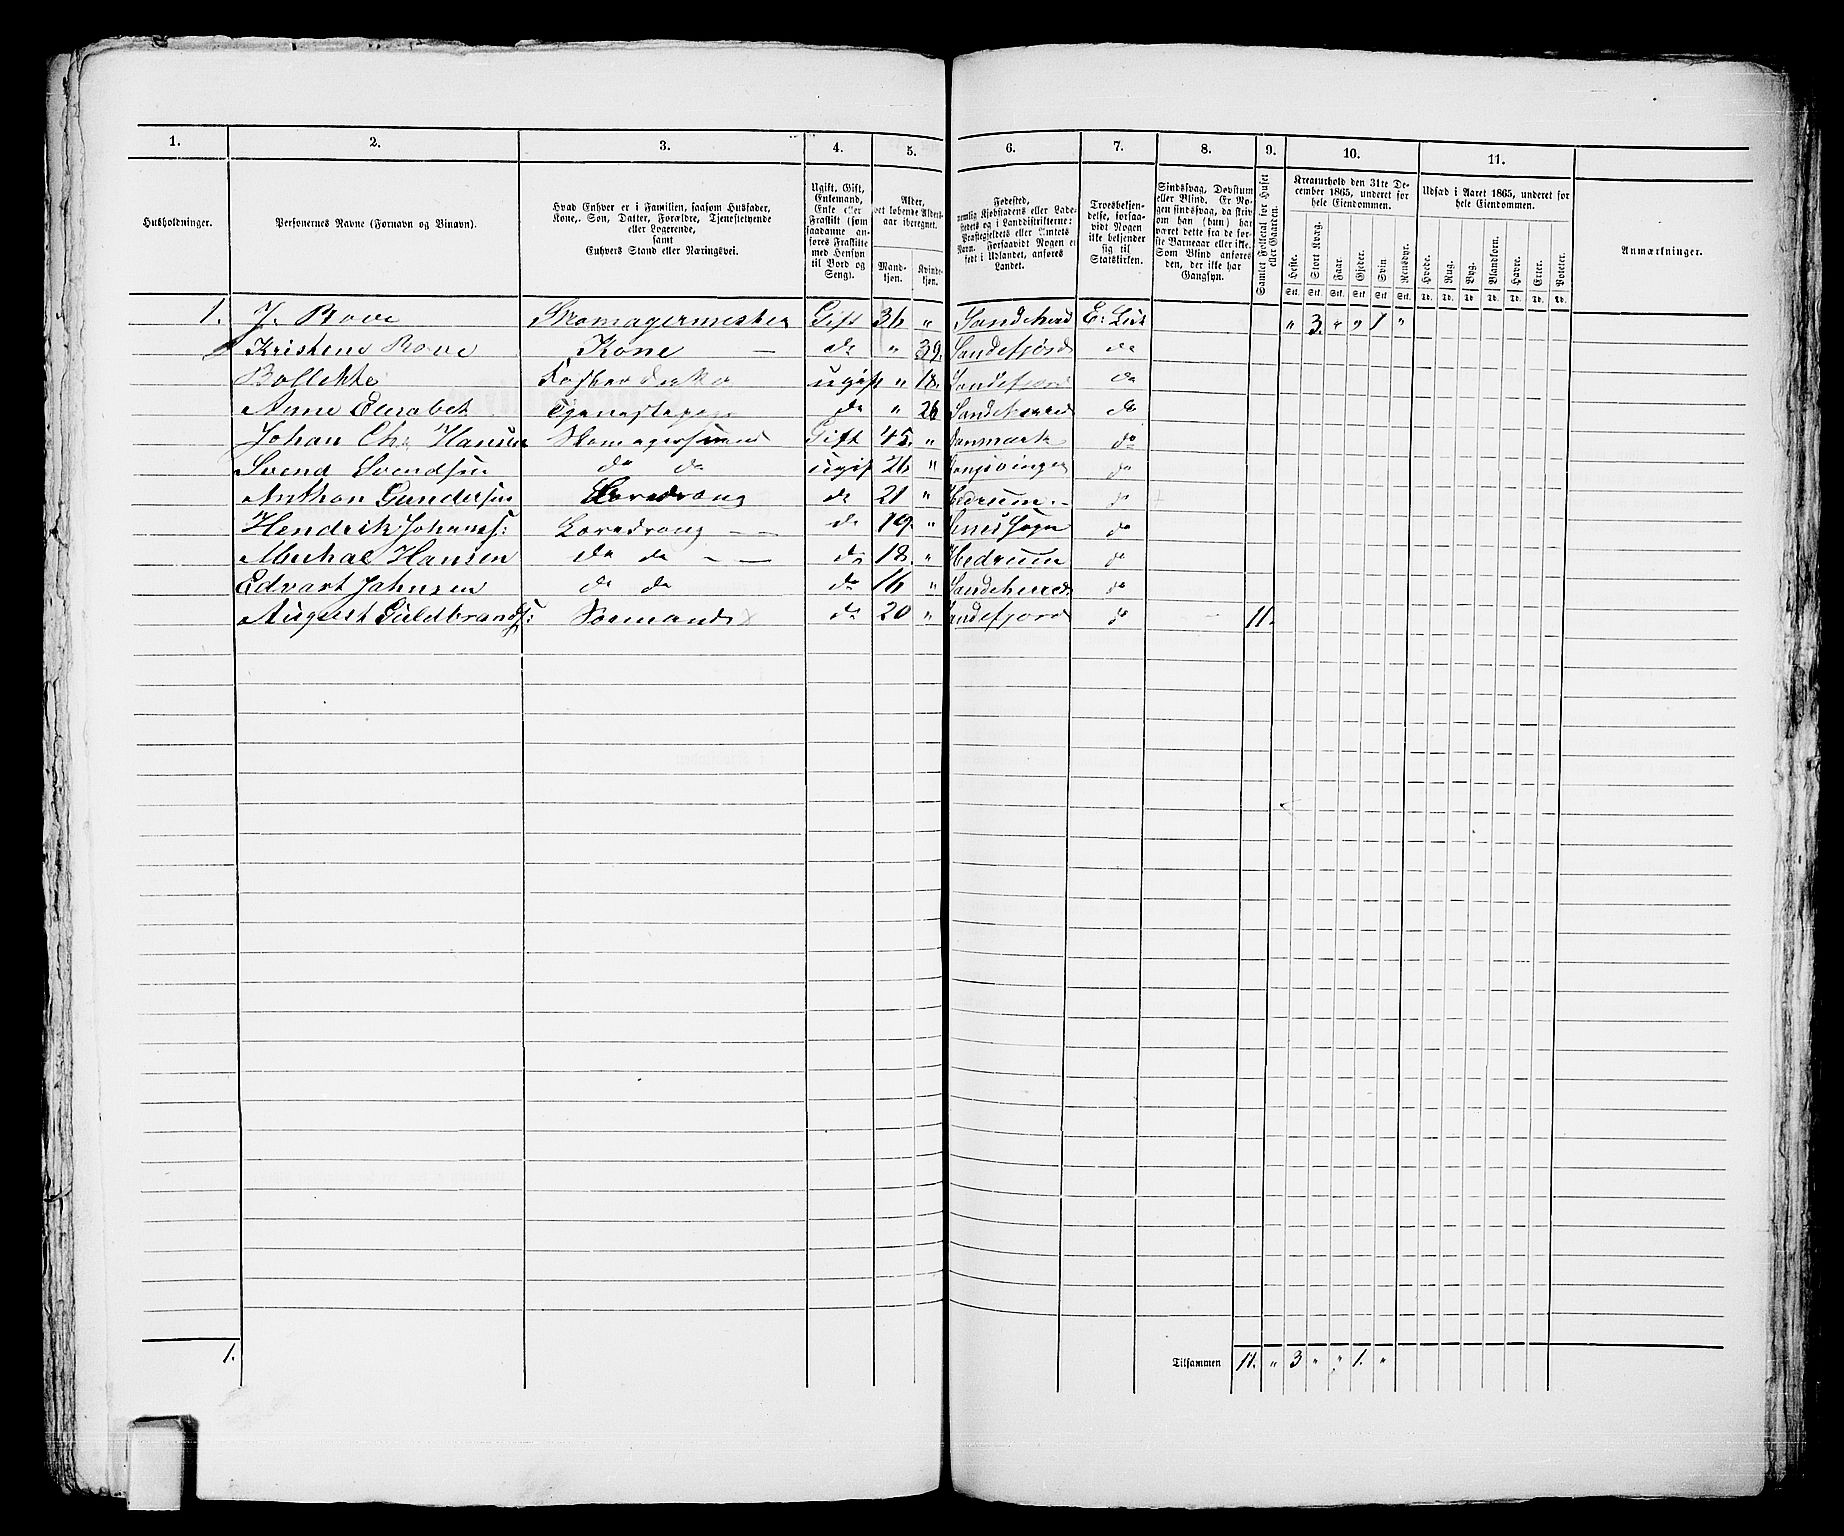 1. 2. 3. 4. 5. 6. 7. 8. 9. 10. 11.
Husholdninger.
Personernes Navne (Fornavn og Binavn).
Hvad Enhver er i Familien, saasom Husfader, Kone, Søn, Datter, Forældre, Tjenestetyende eller Logerende, samt Enhvers Stand eller Næringsvei.
Ugift, Gift, Enkemand, Enke eller Fraskilt (som saadanne anføres Fraskilte med Hensyn til Bord og Seng).
Alder, det løbende Alders-aar iberegnet.
Mandkjøn. Kvindekjøn.
Fødested, nemlig Kjøbstadens eller Ladestedets og i Landdistrikterne: Præstegjeldets eller Amtets Navn. Forsaavidt Nogen er født i Udlandet, anføres Landet.
Troesbekjendelse, forsaavidt Nogen ikke bekjender sig til Statskirken.
Sindssvag, Døvstum eller Blind. Er Nogen sindssvag, da skrives om han (hun) har været dette fra de første Barneaar eller ikke. Som Blind anføres den, der ikke har Gangsyn.
Samlet Folketal for Huset eller Gaarden.
Kreaturhold den 31te December 1865, underet for hele Eiendommen.
Heste. Stort Kvæg. Faar. Gjeder. Svin. Rensdyr.
Udsæd i Aaret 1865, underet for hele Eiendommen.
Hvede. Rug. Byg. Blandkorn. Havre. Erter. Poteter.
Anmærkninger.
Stk. Stk. Stk. Stk. Stk. Stk. Td. Td. Td. Td. Td. Td. Td.
1. J. Rove Skomagermester Gift 36 " Sandeherred E: Lut " 3. " " 1 "
Kristene Rove Kone — do " 39. Sandefjord do
Bollette ugift " 18. Sandefjord do
Anne Elisabet do " 26 Sandeherred do
Johan Chr Hansen Skomagersvend Gift 45. " Danmark do
Svend Svendsen do do ugift 26. " Kongsvinger do
Anthon Gundersen Læredreng do 21 " Hedrum do
Hendrik Johanns: Læredreng do 19. " do
Michal Hansen do do do 18. " Hedrum do
Edvart Johnsen do do do 16 " Sandeherred do
August Guldbrands: do 20 " Sandefjord do 11.
1. Tilsammen 11. " 3 " " 1. "